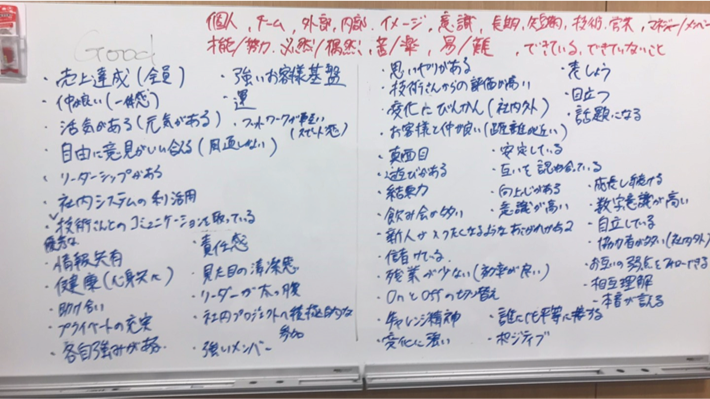 Good
個人、チーム、外部、内部、イメージ、意識、長期、短期、技術、営業、マネジャー/メンバー
才能/努力、必然/偶然、苦/楽、易/難、できている、できていないこと
・売上達成(全員)
・仲が良い(一体感)
・活気がある(元気がある)
・自由に意見がいい合える(風通し)
・リーダーシップがある
・社内システムの利活用
・技術さんとのコミュニケーションを取っている
優秀な
・情報共有
・健康(心身共に)
・助け合い
・プライベートの充実
・各自強みがある
・強いお客様基盤
・運
・フットワークが軽い
(スピード感)
・責任感
・見た目の清潔感
・リーダーが太っ腹
・社内プロジェクトへ積極的な
参加
・強いメンバー
・思いやりがある
・技術さんからの評価が高い
・変化にびんかん(社内外)
・お客様と仲が良い(距離が近い)
・真面目
・遊びがある
・結束力
・飲み会が多い
・新人が入りたくなるような
・信頼
・残業が少ない(効率が良い)
・OnとOffの切り替え
・チャレンジ精神
・変化に強い
・安定している
・互いを認め合っている
・向上心がある
・意識が高い
・誰にでも平等に接する
・ポジティブ
・表しょう
・目立つ
・話題になる
・成長し続ける
・数字意識が高い
・自立している
・協力者が多い(社内外)
・お互いの弱点をフォローできる
・相互理解
・本音が言える